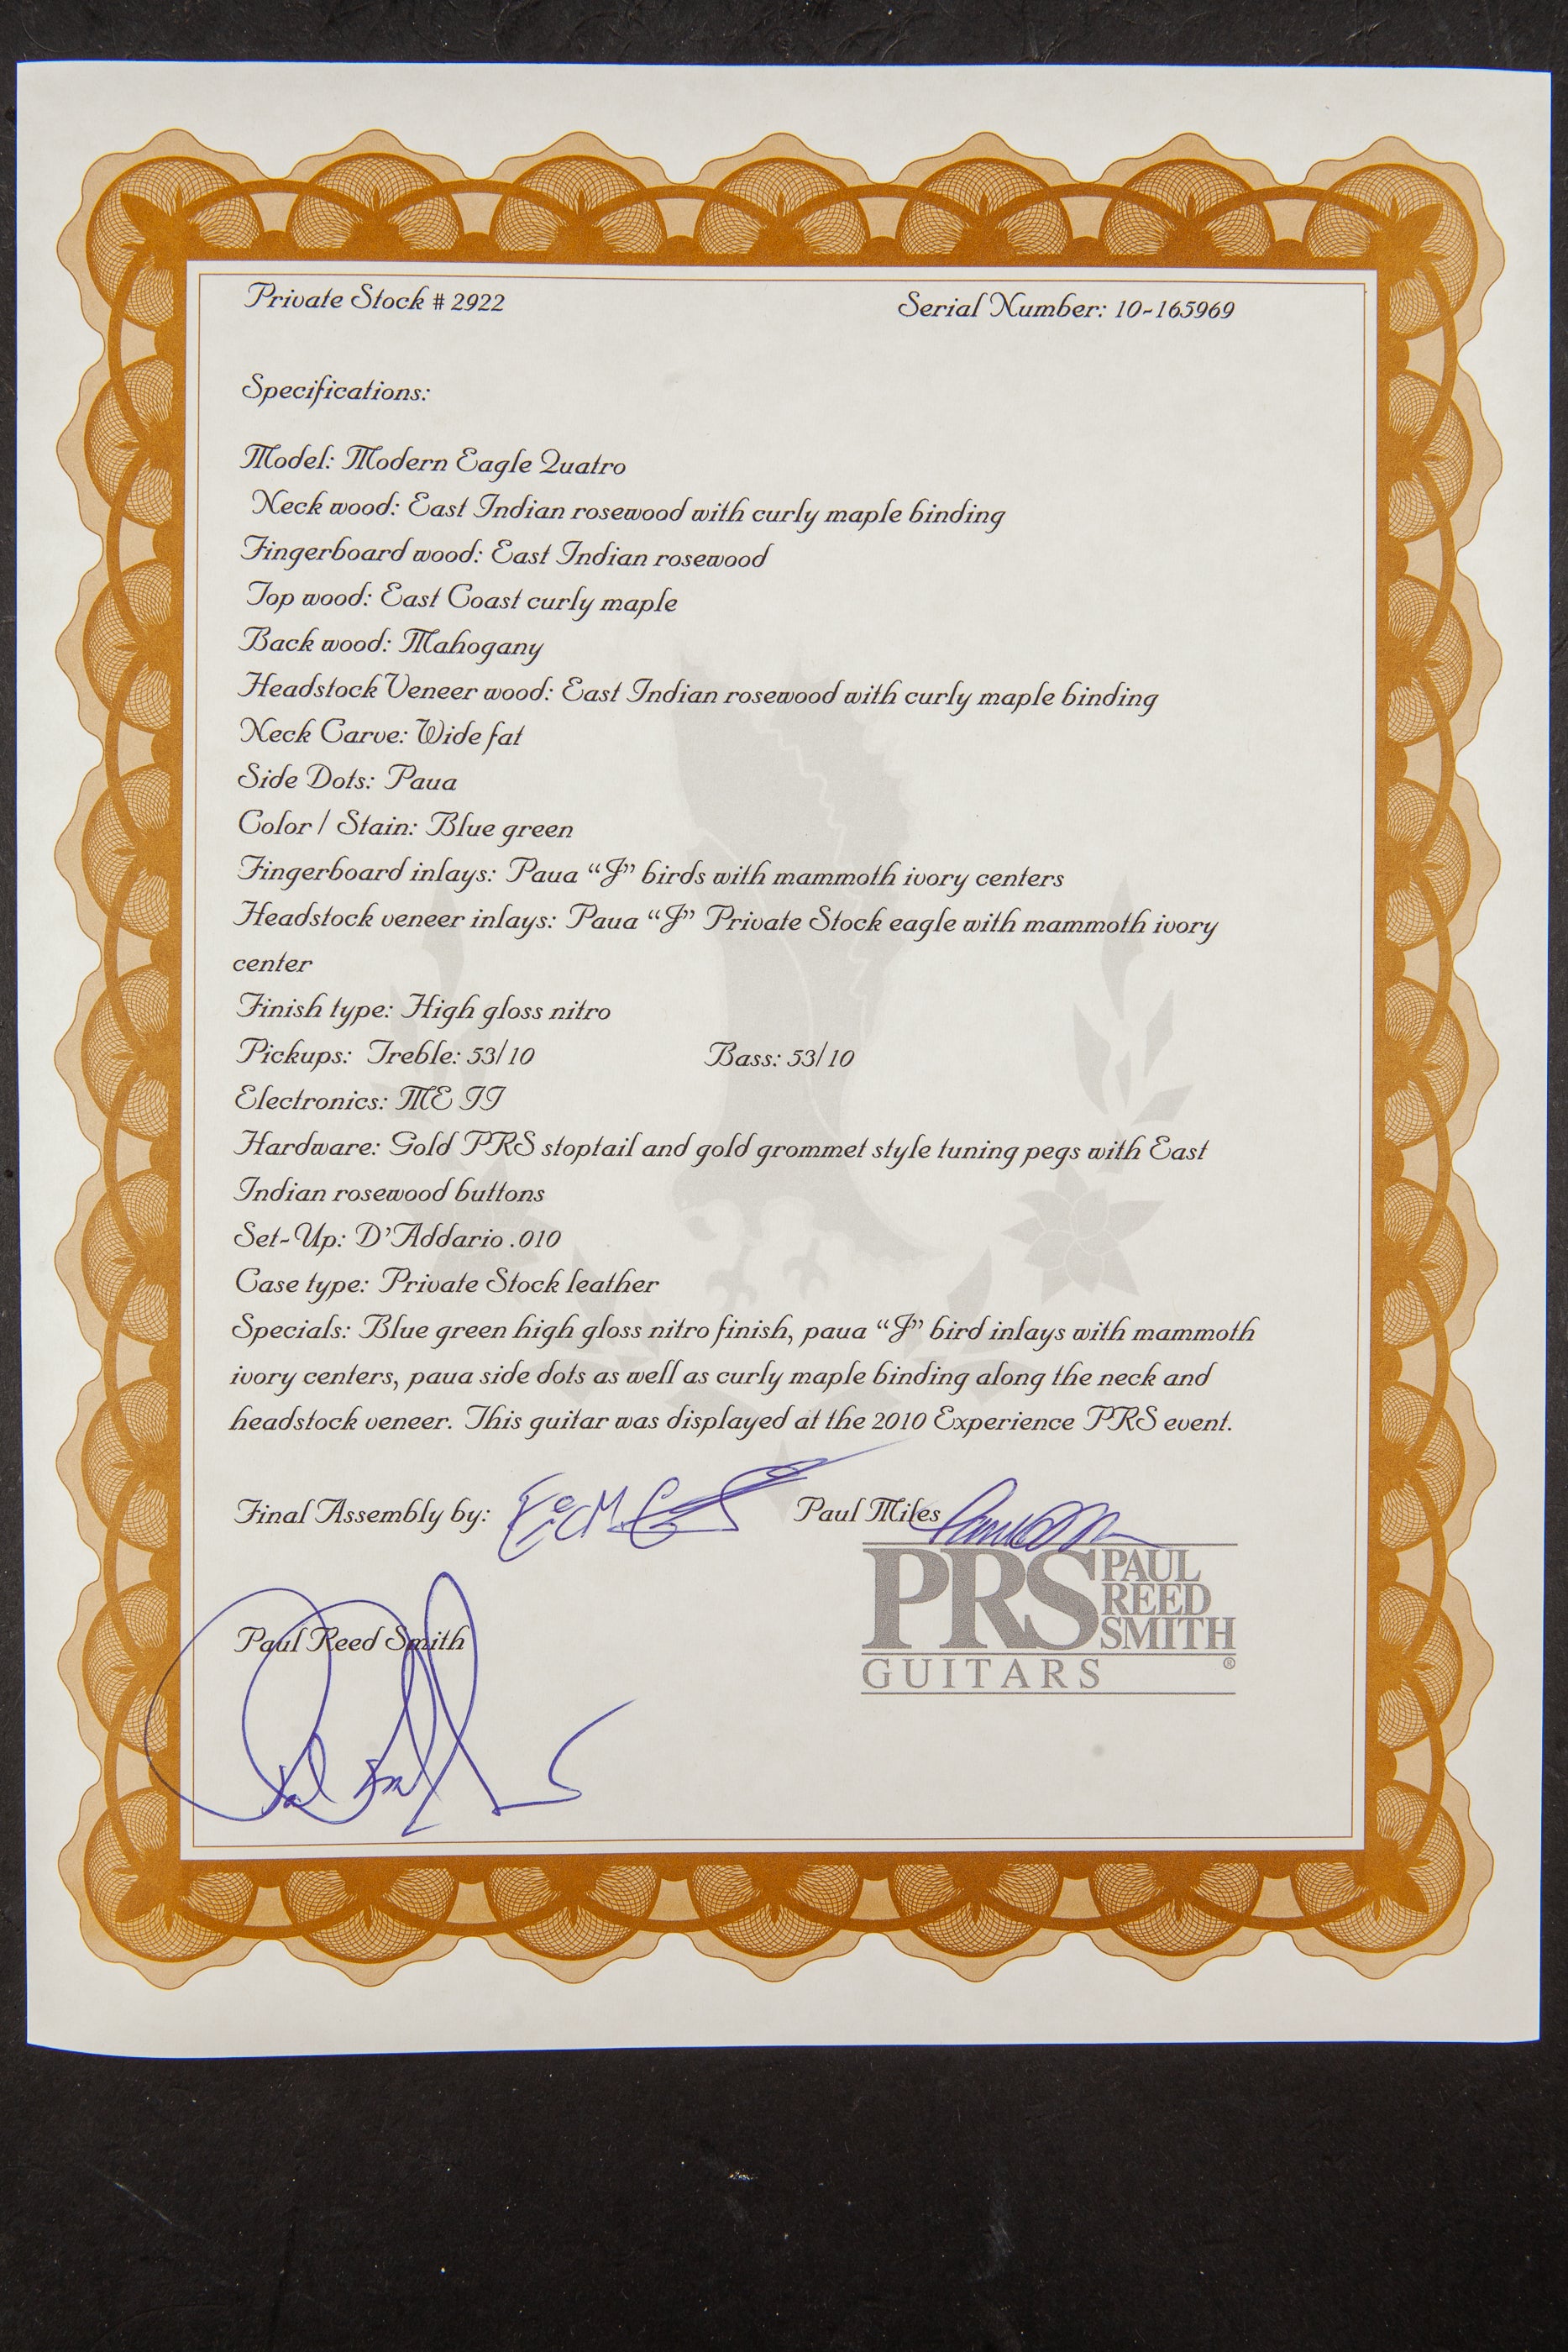 Private Stock # 2922 Serial Number: 10-165969
Specifications:
Model: Modern Eagle Quatro
Neck wood: East Indian rosewood with curly maple binding
Fingerboard wood: East Indian rosewood
Top wood: East Coast curly maple
Back wood: Mahogany
Headstock Veneer wood: East Indian rosewood with curly maple binding
Neck Carve: Wide fat
Side Dots: Paua
Color / Stain: Blue green
Fingerboard inlays: Paua “J” birds with mammoth ivory centers
Headstock veneer inlays: Paua “J” Private Stock eagle with mammoth ivory
center
Finish type: High gloss nitro
Pickups: Treble: 53/10 Bass: 53/10
Electronics: ME II
Hardware: Gold PRS stoptail and gold grommet style tuning pegs with East
Indian rosewood buttons
Set-Up: D’Addario .010
Case type: Private Stock leather
Specials: Blue green high gloss nitro finish, paua “J” bird inlays with mammoth
ivory centers, paua side dots as well as curly maple binding along the neck and
headstock veneer. This guitar was displayed at the 2010 Experience PRS event.
Final Assembly by: Paul Miles
PRS PAUL
REED
SMITH
GUITARS ®
Paul Reed Smith